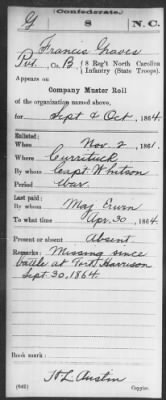 Confederate.
G 8 N.C.
Francis Graves
Pvt, Co. B, 8 Reg't North Carolina
Infantry (State Troops).
Appears on
Company Muster Roll
of the organization named above,
for Sept & Oct, 1864.
Enlisted:
When Nov. 2, 1861.
Where Currituck
By whom Capt. Whitson
Period War
Last paid:
By whom Maj Erwin
To what time Apr. 30, 1864.
Present or absent Absent
Remarks: Missing since
battle at Fort Harrison
Sept. 30, 1864.
Book mark:
H L Austin
(642) Copyist.